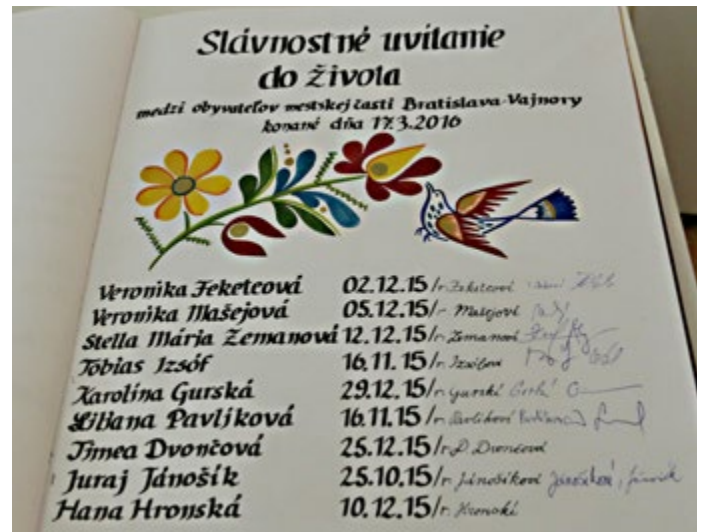 Slávnostné uvítanie
do života
medzi obyvateľov mestskej časti Bratislava-Vajnory
konané dňa 17.3.2016
Veronika Feketeová 02.12.15/r. Feketeoví
Veronika Mašejová 05.12.15/r. Mašejoví
Stella Mária Zemanová 12.12.15/r. Zemanoví
Tobias Izsóf 16.11.15/r. Izsófoví
Karolína Gurská 29.12.15/r. Gurskí
Liliana Pavlíková 16.11.15/r. Pavlíkoví
Timea Dvončová 25.12.15/r. D. Dvončoví
Juraj Jánošík 25.10.15/r. Jánošíkoví
Hana Hronská 10.12.15/r. Hronskí